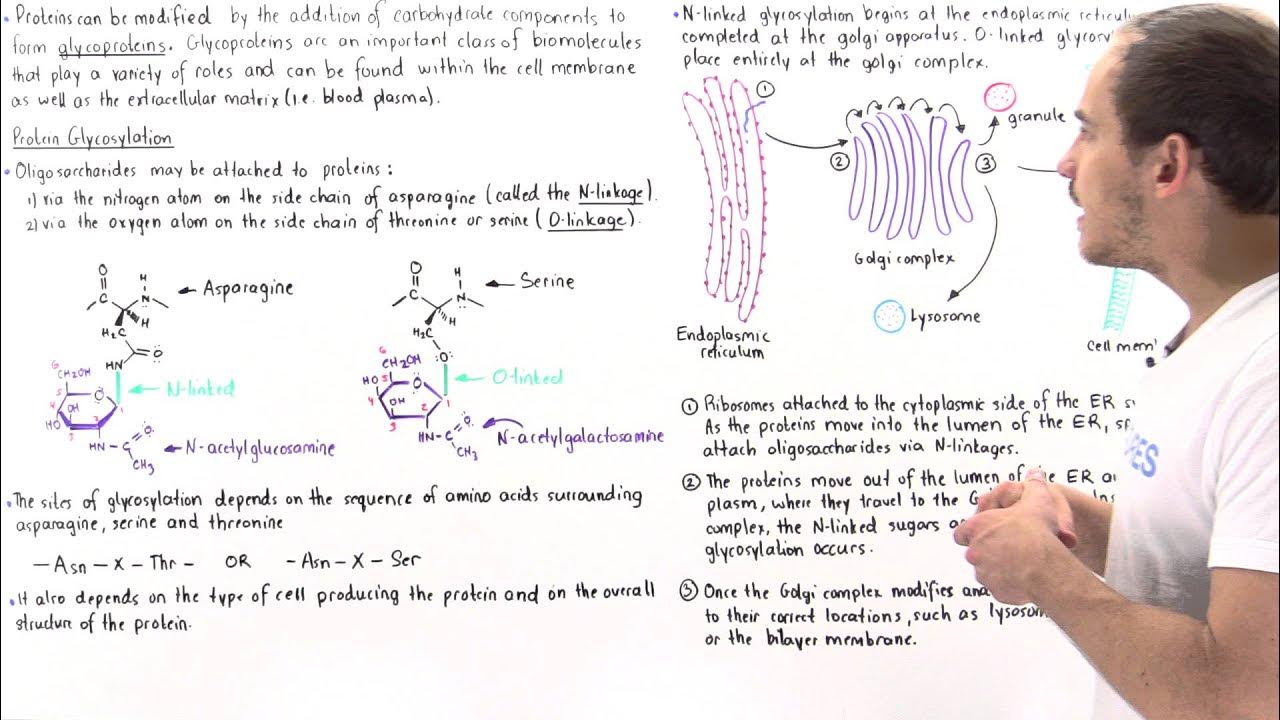 • Proteins can be modified by the addition of carbohydrate components to
form glycoproteins. Glycoproteins are an important class of biomolecules
that play a variety of roles and can be found within the cell membrane
as well as the extracellular matrix (i.e. blood plasma).
Protein Glycosylation
• Oligosaccharides may be attached to proteins:
1) via the nitrogen atom on the side chain of asparagine (called the N-linkage).
2) via the oxygen atom on the side chain of threonine or serine (O-linkage).
O
C
N
H
H
H₂C
C
O
HN
Asparagine
N-linked
6
CH₂OH
5
O
4
OH
HO
3
2
1
HN-C
O
CH₃
N-acetylglucosamine
O
C
N
H
H
H₂C
:O:
Serine
O-linked
6
CH₂OH
HO
5
O
4
OH
3
2
1
HN-C
O
CH₃
N-acetylgalactosamine
• The sites of glycosylation depends on the sequence of amino acids surrounding
asparagine, serine and threonine
- Asn - X - Thr - OR - Asn - X - Ser
• It also depends on the type of cell producing the protein and on the overall
structure of the protein.
• N-linked glycosylation begins at the endoplasmic
completed at the golgi apparatus. O-linked
place entirely at the golgi complex.
①
②
③
granule
Golgi complex
Lysosome
Endoplasmic
reticulum
cell
① Ribosomes attached to the cytoplasmic side of the ER
As the proteins move into the lumen of the ER,
attach oligosaccharides via N-linkages.
② The proteins move out of the lumen of the ER
plasm, where they travel to the
complex, the N-linked sugars
glycosylation occurs.
③ Once the Golgi complex modifies
to their correct locations, such as
or the bilayer membrane.